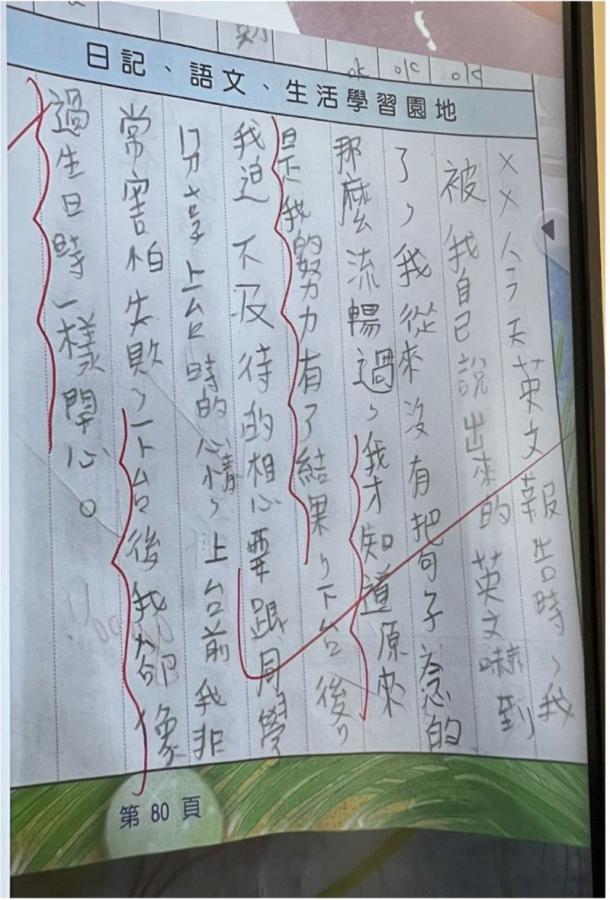 ok ok ok
日記、語文、生活學習園地
××人今天英文報告時，我
被我自己說出來的英文嚇到
了，我從來沒有把句子念的
那麼流暢過，我才知道原來
是我的努力有了結果，下台後，
我迫不及待的想要跟同學
分享上台時的心情，上台前我非
常害怕失敗，下台後我卻像
過生日時一樣開心。
第 80 頁